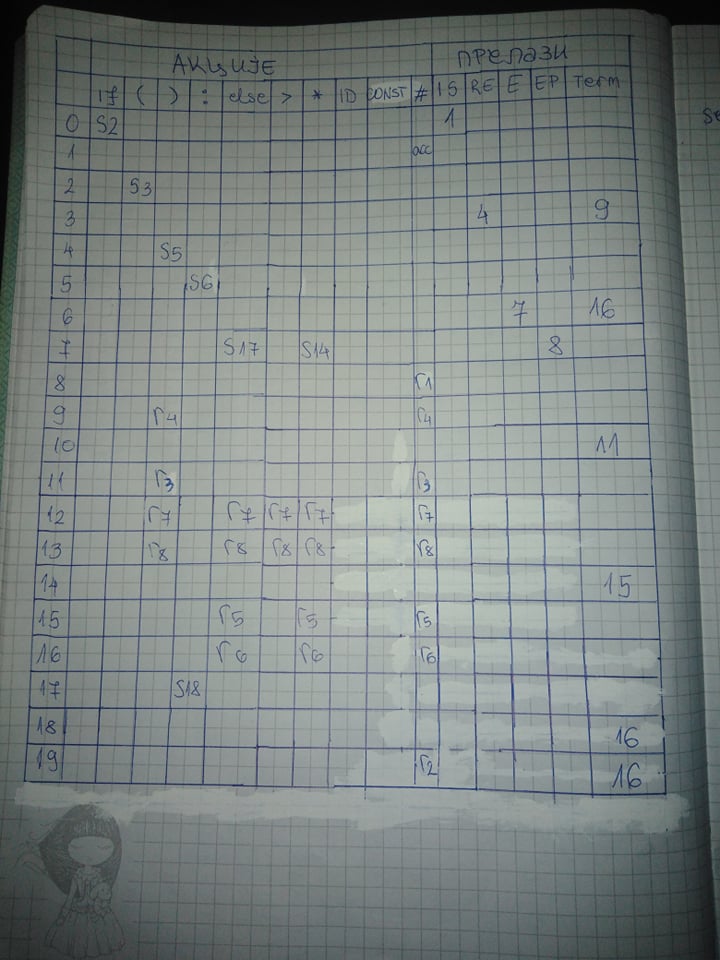 АКЦИЈЕ ПРЕЛАЗИ
If ( ) : else > * ID CONST # IS RE E EP Term
0 S2 1
1 acc
2 S3
3 4 9
4 S5
5 S6
6 7 16
7 S17 S14 8
8 r1
9 r4 r4
10 11
11 r3 r3
12 r7 r7 r7 r7 r7
13 r8 r8 r8 r8 r8
14 15
15 r5 r5 r5
16 r6 r6 r6
17 S18
18 16
19 r2 16